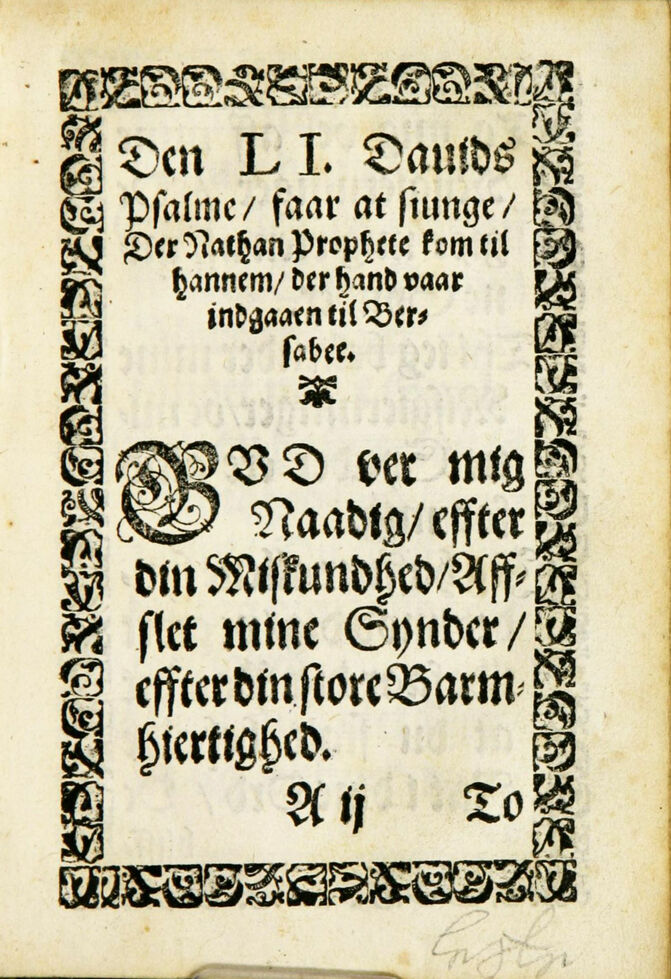 Den LI. Dauids
Psalme/ faar at siunge/
Der Nathan Prophete kom til
hannem/ der hand vaar
indgaaen til Ber⸗
sabee.
GVD ver mig
Naadig/ effter
din Miskundhed/ Aff⸗
slet mine Synder/
effter din store Barm⸗
hiertighed.
A ij To